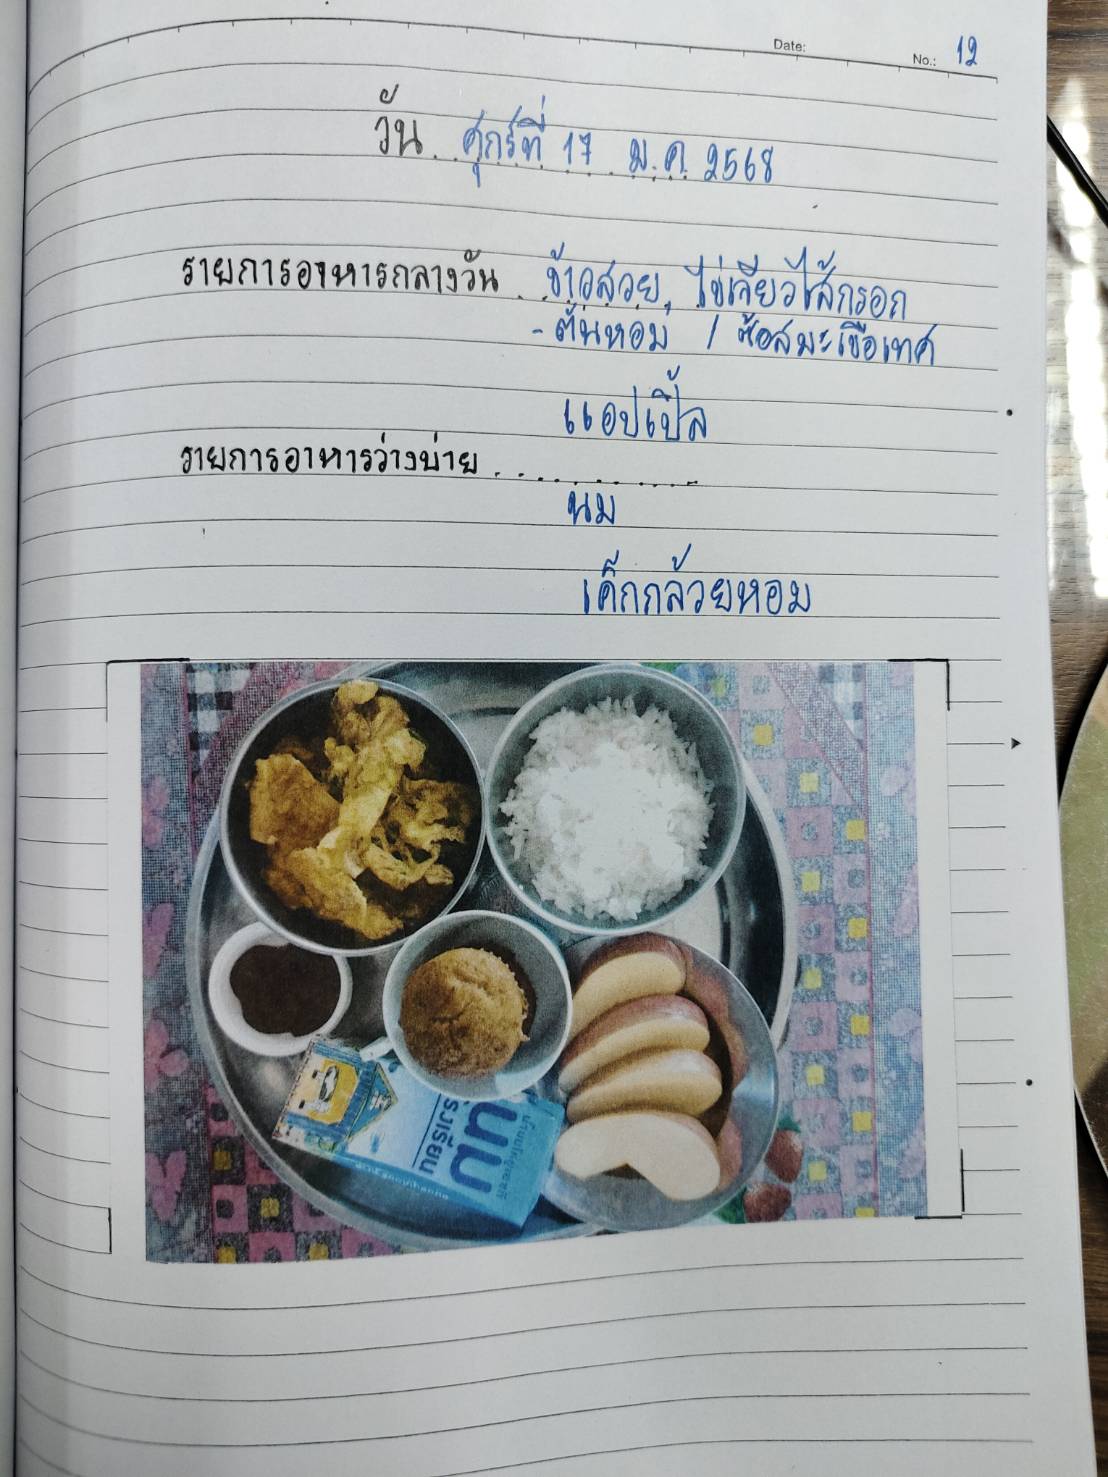 Date:
No.: 12
วัน ศุกร์ที่ 17 ม.ค. 2568
รายการอาหารกลางวัน ข้าวสวย, ไข่เจียวไส้กรอก
- ต้นหอม / ซอสมะเขือเทศ
แอปเปิ้ล
รายการอาหารว่างบ่าย
นม
เค็กกล้วยหอม
นม
โรงเรียน